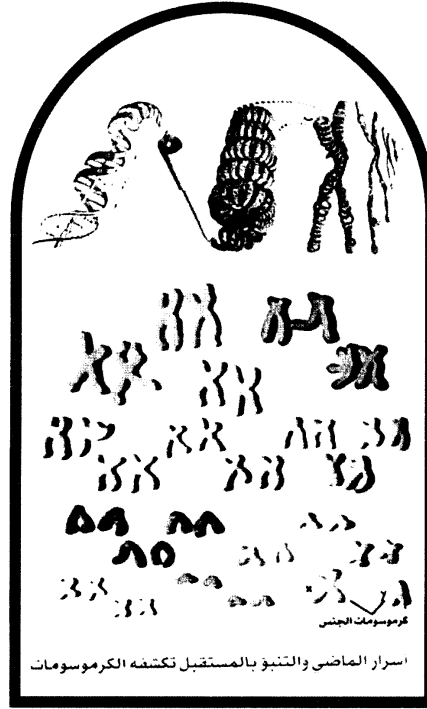 كرموسومات الجنس
اسرار الماضي والتنبؤ بالمستقبل تكشفه الكرموسومات